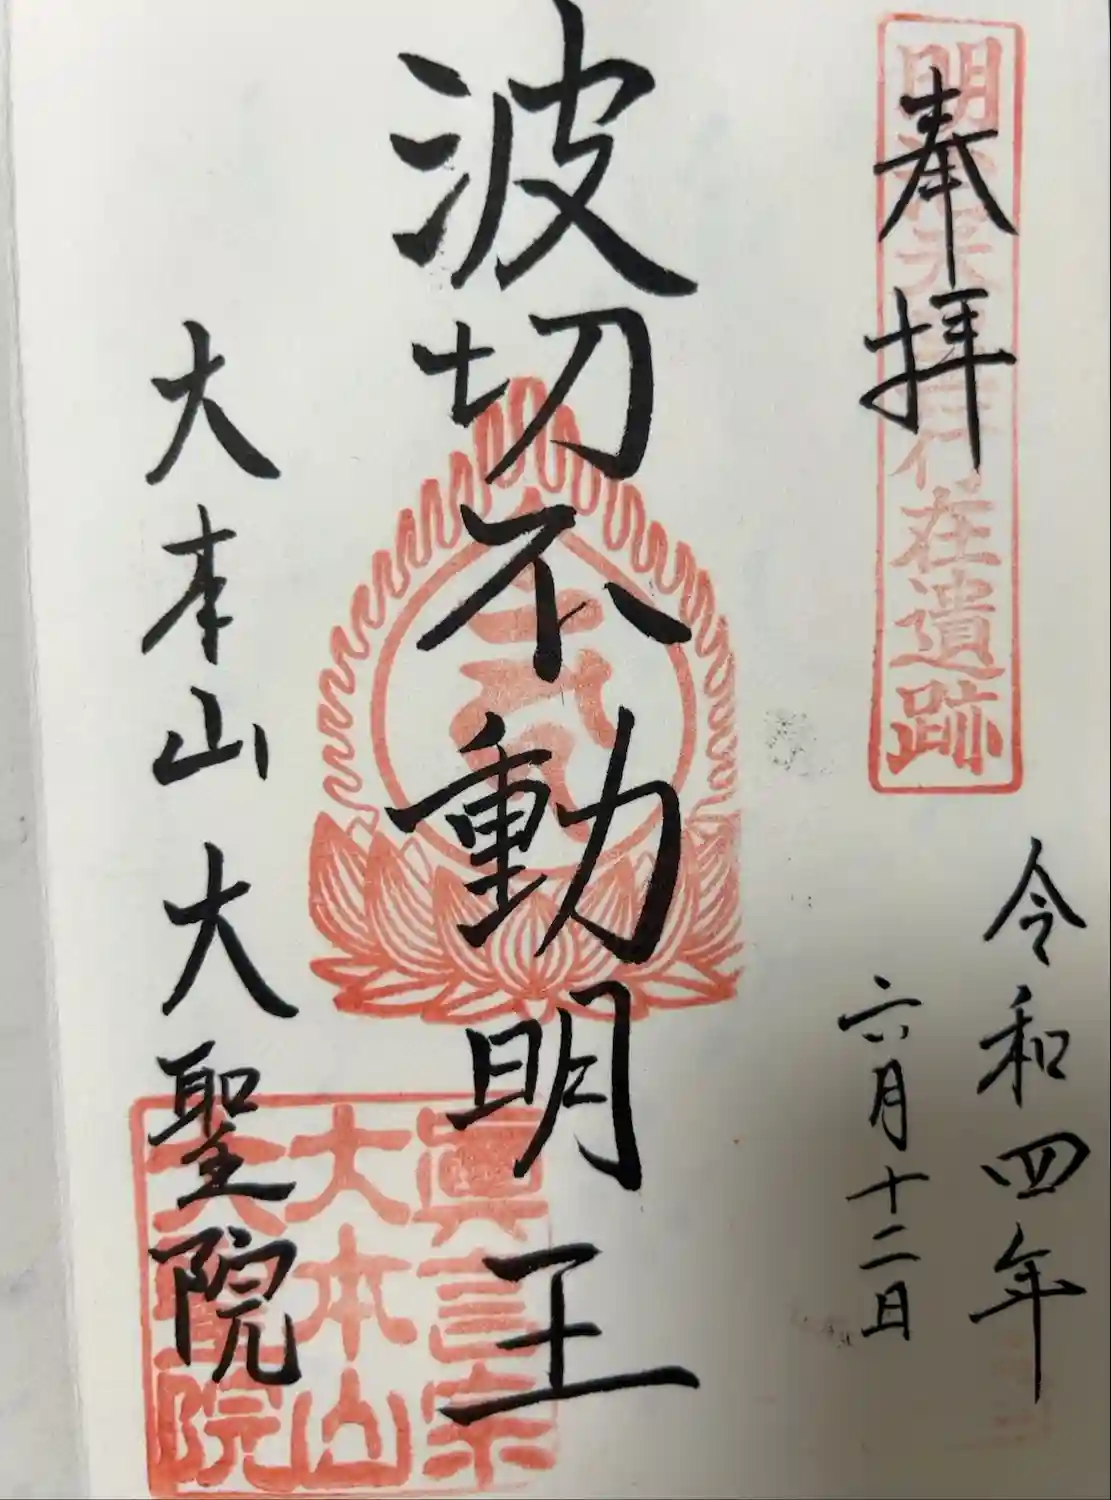 奉拝
明治天皇行在遺跡
令和四年
六月十二日
波切不動明王
大本山大聖院
眞言宗
大本山
大聖院